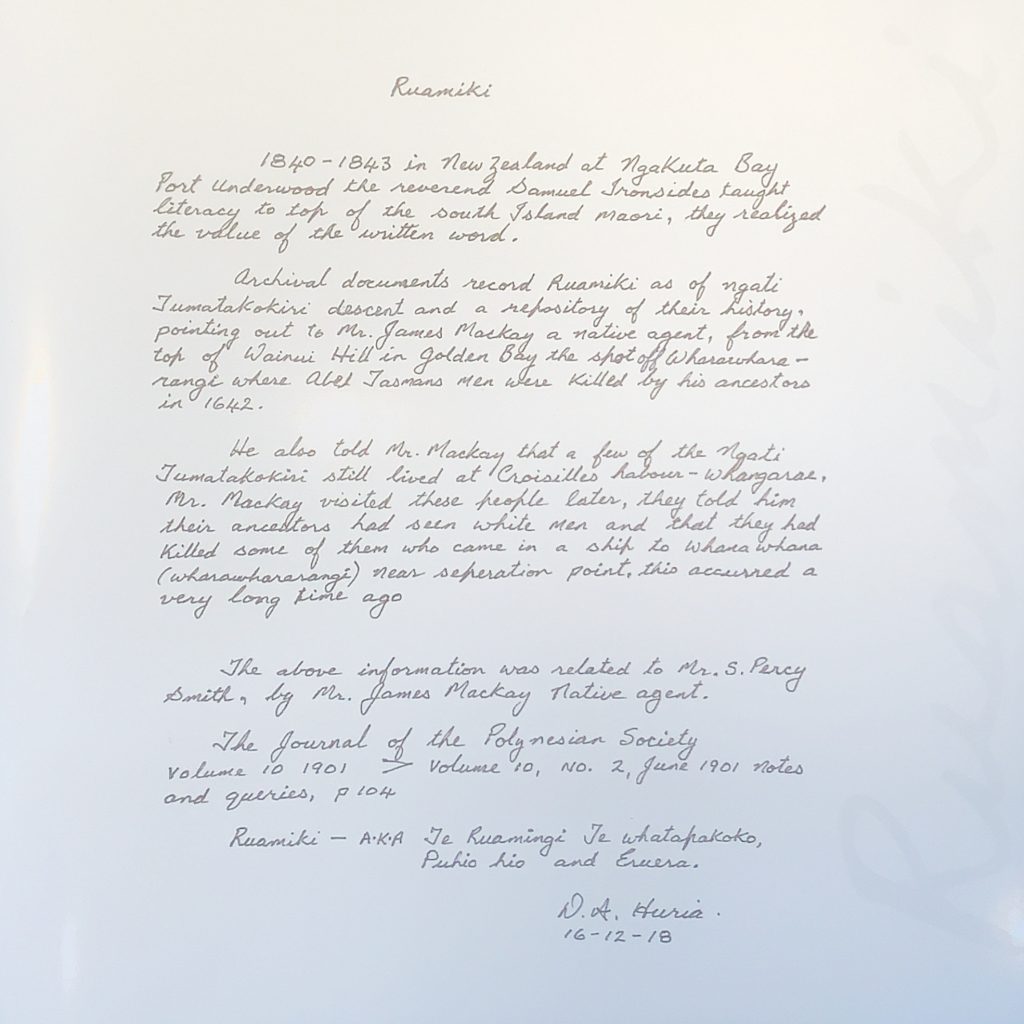 Ruamiki
1840-1843 in New Zealand at Ngakuta Bay
Port Underwood the reverend Samuel Ironsides taught
literacy to top of the south Island maori, they realized
the value of the written word.
Archival documents record Ruamiki as of ngati
Tumatakokiri descent and a repository of their history,
pointing out to Mr. James Mackay a native agent, from the
top of Wainui Hill in Golden Bay the spot off Wharawhara-
rangi where Abel Tasmans men were killed by his ancestors
in 1642.
He also told Mr. Mackay that a few of the Ngati
Tumatakokiri still lived at Croisilles habour - Whangarae,
Mr. Mackay visited these people later, they told him
their ancestors had seen white men and that they had
killed some of them who came in a ship to whanawhana
(wharawhararangi) near seperation point, this accurred a
very long time ago
The above information was related to Mr. S. Percy
Smith, by Mr. James Mackay Native agent.
The Journal of the Polynesian Society
volume 10 1901 > volume 10, no. 2, June 1901 notes
and queries, p 104
Ruamiki - A.K.A Te Ruamingi Te whatapakoko,
Puhio hio and Eruera.
D. A. Huria.
16-12-18
Ruamiki